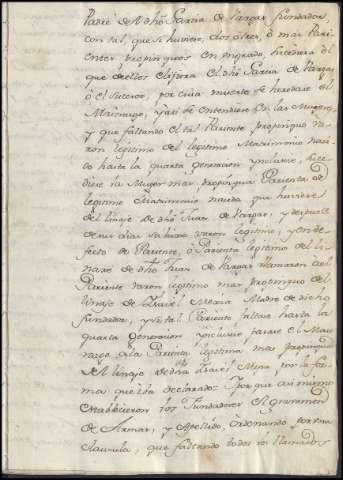 Padre de el dho Garcia de Vargas fundador,
con tal, que si huviere dos, ô tres, ô mas Pari-
entes propinquos en un grado, sucediera el
que de ellos eligiera el dho Garcia de Vargas,
ô el sucesor, por cuia muerte se heredare el
Maiorazgo, y asi se entendiere en las Mugeres,
y que faltando el tal Pariente propinquo va-
ron legitimo de legitimo Matrimonio naci-
do hasta la quarta generacion ynclusive, suce-
diere la Muger mas propinqua Parienta de
legitimo Matrimonio nacida que huviere
del linaje de dho Juan de Vargas, y despues
de sus dias su hijo varon legitimo, y en de-
fecto de Pariente, ô Parienta legitima del li-
naje de dho Juan de Vargas llamaron al
Pariente varon legitimo mas propinquo del
linaje de Ysavel Mexia Madre de dicho
fundador, y si tal Pariente faltase hasta la
quarta generacion ynclusive pasase el Maio-
razgo â la Parienta legitima mas propinqua
del linaje de dha Ysavel Mexia, por la for-
ma que iba declarado: Y por que asi mismo
establecieron los Fundadores el gravamen
de Armas, y Apellido, ordenando por una
clausula, que faltando todos los llamados